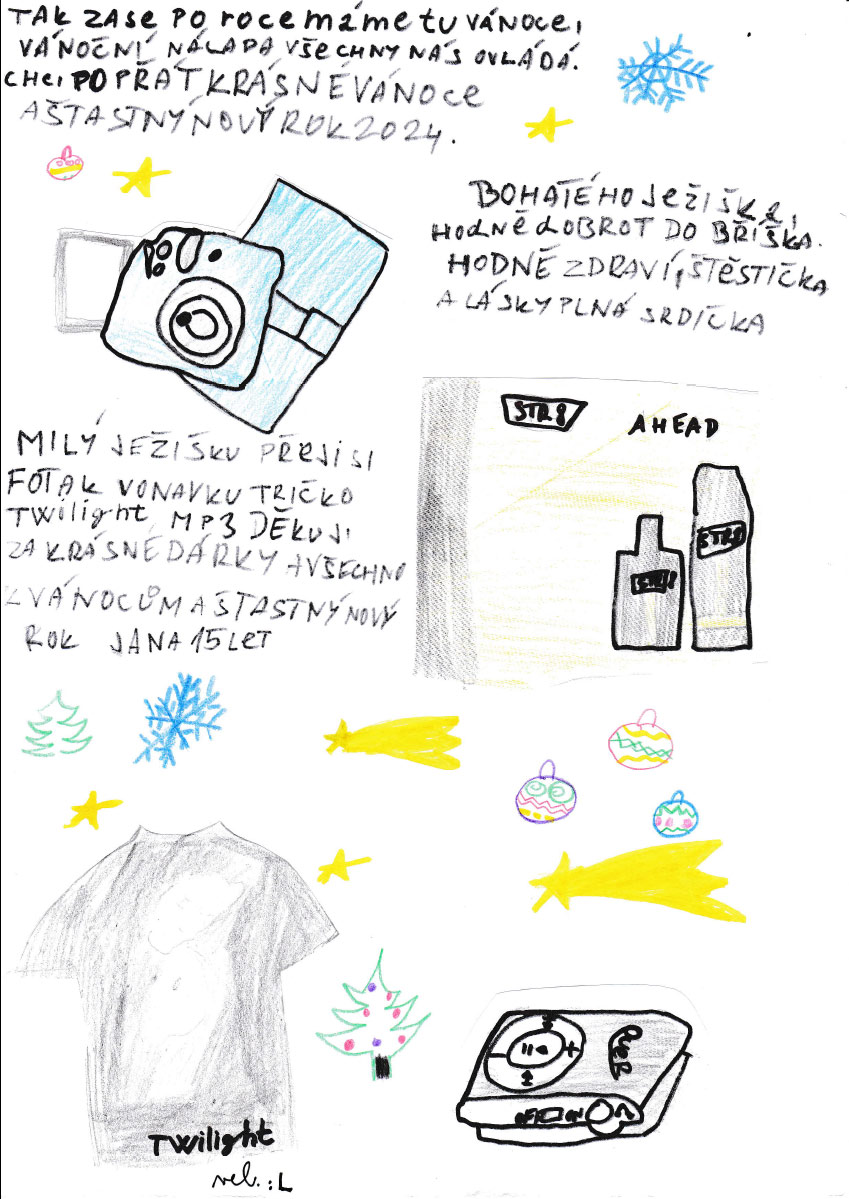 TAK ZASE PO ROCE MÁME TU VÁNOCE,
VÁNOČNÍ NÁLADA VŠECHNY NÁS OVLÁDÁ.
CHCI POPŘÁT KRÁSNÉ VÁNOCE
A ŠTASTNÝ NOVÝ ROK 2024.
BOHATÉHO JEŽIŠKA,
HODNĚ DOBROT DO BŘÍŠKA.
HODNĚ ZDRAVÍ, ŠTĚSTÍČKA
A LÁSKY PLNÁ SRDÍČKA
STR8
AHEAD
MILÝ JEŽÍŠKU PŘEJI SI
FOŤAK VONAVKU TRIČKO
TWilight, MP3 DĚKUJI
ZA KRÁSNÉ DÁRKY A VŠECHNO
K VÁNOCŮM A ŠTASTNÝ NOVÝ
ROK JANA 15 LET
STR8
STR8
OFF ON
TWilight
vel.: L